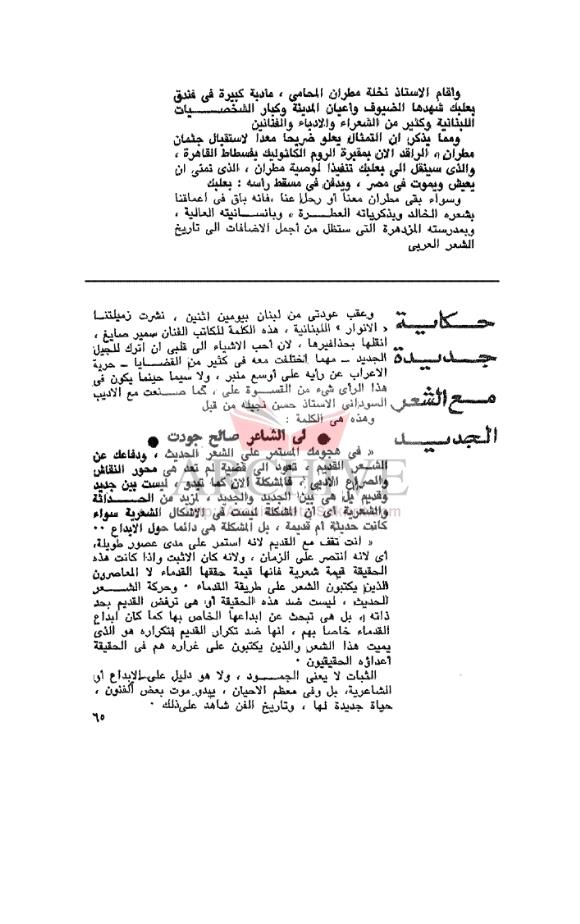 واقام الاستاذ نخلة مطران المحامى ، مادبة كبيرة فى فندق
بعلبك شهدها الضيوف واعيان المدينة وكبار الشخصــــيات
اللبنانية وكثير من الشعراء والادباء والفنانين
ومما يذكر ان التمثال يعلو ضريحا معدا لاستقبال جثمان
مطران ، الراقد الان بمقبرة الروم الكاثوليك بفسطاط القاهرة ،
والذى سينقل الى بعلبك تنفيذا لوصية مطران ، الذى تمنى ان
يعيش ويموت فى مصر ، ويدفن فى مسقط راسه : بعلبك
وسواء بقى مطران معنا أو رحل عنا ،فانه باق فى أعماقنا
بشعره الخالد وبذكرياته العطــــرة ، وبانســـانيته العالية ،
وبمدرسته المزدهرة التى ستظل من أجمل الاضافات الى تاريخ
الشعر العربى
حكـــاية
جـديـدة
مـع الشعر
الجـديـد
وعقب عودتى من لبنان بيومين اثنين ، نشرت زميلتنـــا
« الانوار » اللبنانية ، هذه الكلمة للكاتب الفنان سمير صايغ ،
انقلها بحذافيرها ، لان أحب الاشياء الى قلبى ان اترك للجيل
الجديد ــ مهما اختلفت معه فى كثير من القضــــايا ــ حرية
الاعراب عن رأيه على أوسع منبر ، ولا سيما حينما يكون فى
هذا الرأى شىء من القســــوة على ، كما صـــنعت مع الاديب
السودانى الاستاذ حسن نجيلة من قبل
وهذه هى الكلمة :
● لى الشاعر صالح جودت ●
« فى هجومك المستمر على الشعر الحديث ، ودفاعك عن
الشــعر القديم ، تعود الى قضية لم تعد هى محور النقاش
والصراع الادبى ، فالمشكلة الان كما تبدو ، ليست بين جديد
وقديم بل هى بين الجديد والجديد ، لمزيد من الحــــداثة
والشعرية أى ان المشكلة ليست فى الاشكال الشعرية سواء
كانت حديثة أم قديمة ، بل المشكلة هى دائما حول الابداع ٠٠
« انت تقف مع القديم لانه استمر على مدى عصور طويلة،
أى لانه انتصر على الزمان ، ولانه كان الاثبت واذا كانت هذه
الحقيقة قيمة شعرية فانها قيمة حققها القدماء لا المعاصرون
الذين يكتبون الشعر على طريقة القدماء ٠ وحركة الشــــعر
الحديث ، ليست ضد هذه الحقيقة أو هى ترفض القديم بحد
ذاته ، بل هى تبحث عن ابداعها الخاص بها كما كان ابداع
القدماء خاصا بهم ، انها ضد تكرار القديم فتكراره هو الذى
يميت هذا الشعر والذين يكتبون على غراره هم فى الحقيقة
أعداؤه الحقيقيون ٠
الثبات لا يعنى الجمـــود ، ولا هو دليل على الابداع أو
الشاعرية، بل وفى معظم الاحيان ، يبدو موت بعض الفنون ،
حياة جديدة لها ، وتاريخ الفن شاهد على ذلك ٠
٦٥
ARCHIVE